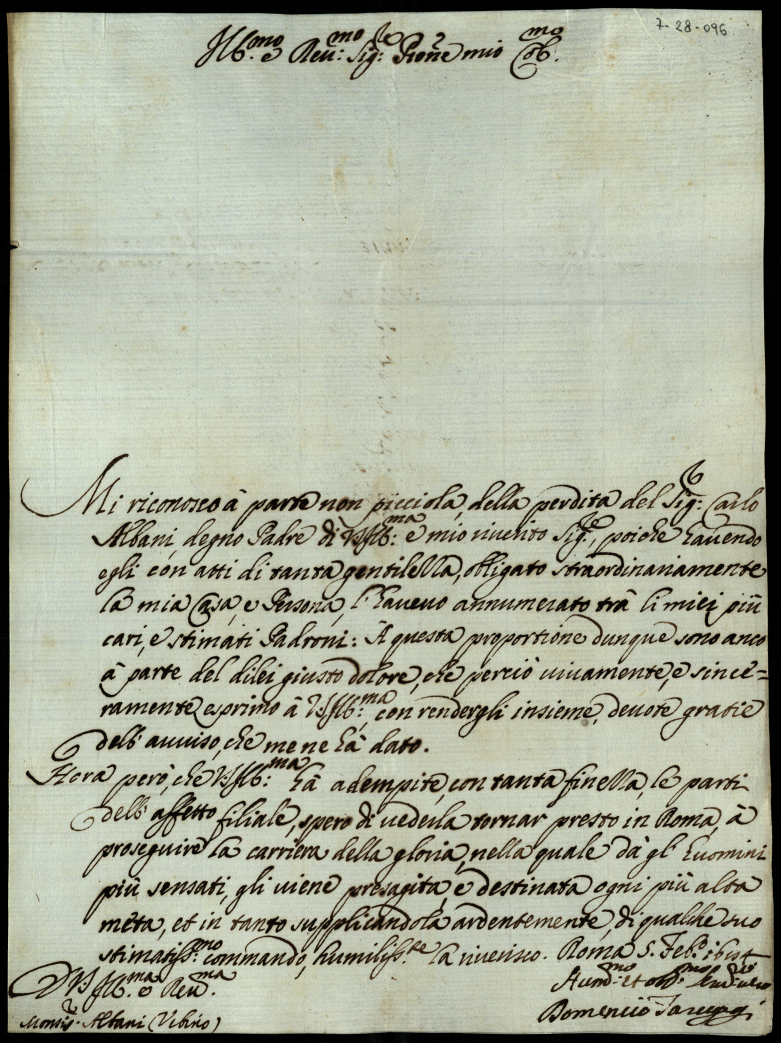 7-28-096
Ill.mo e Reu.mo Sig.re Prone mio Col.mo
Mi riconosco à parte non picciola, della perdita del Sig.r Carlo
Albani degno Padre di V.S. Ill.ma e mio riuerito Sig.re, poiche hauendo
egli con atti di tanta gentilezza, obligato straordinariamente
la mia Casa, e Persona, l'haueuo annumerato trà li miei più
cari, e stimati Padroni: A questa proportione dunque sono anco
à parte del dilei giusto dolore, che perciò viuamente, e since=
ramente esprimo à V.S. Ill.ma con rendergli insieme, deuote gratie
dell' auuiso, che me ne hà dato.
Hora però, che V.S. Ill.ma hà adempite, con tanta finezza, le parti
dell' affetto filiale, spero di uederla tornar presto in Roma, à
proseguire la carriera della gloria, nella quale dà gl' huomini
più sensati, gli viene presagita, e destinata ogni più alta
méta, et in tanto supplicandola ardentemente, di qualche suo
stimatiss.mo commando, humiliss.te la riuerisco. Roma 5. Feb.o
D V.S. Ill.ma e Reu.ma
Hum.mo et obl.mo
Mons.r Albani (Vrbino)
Domenico